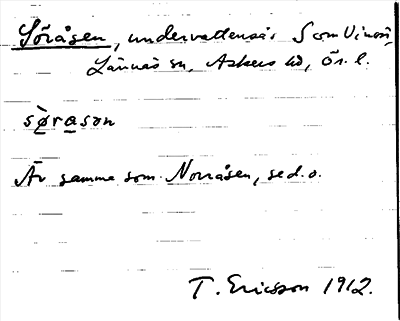 Söråsen, undervattensås S om Vinön,
Lännäs sn, Askers hd, Ör. l.
sø̀rasən
Är samma som Norråsen, se d. o.
T. Ericsson 1912.